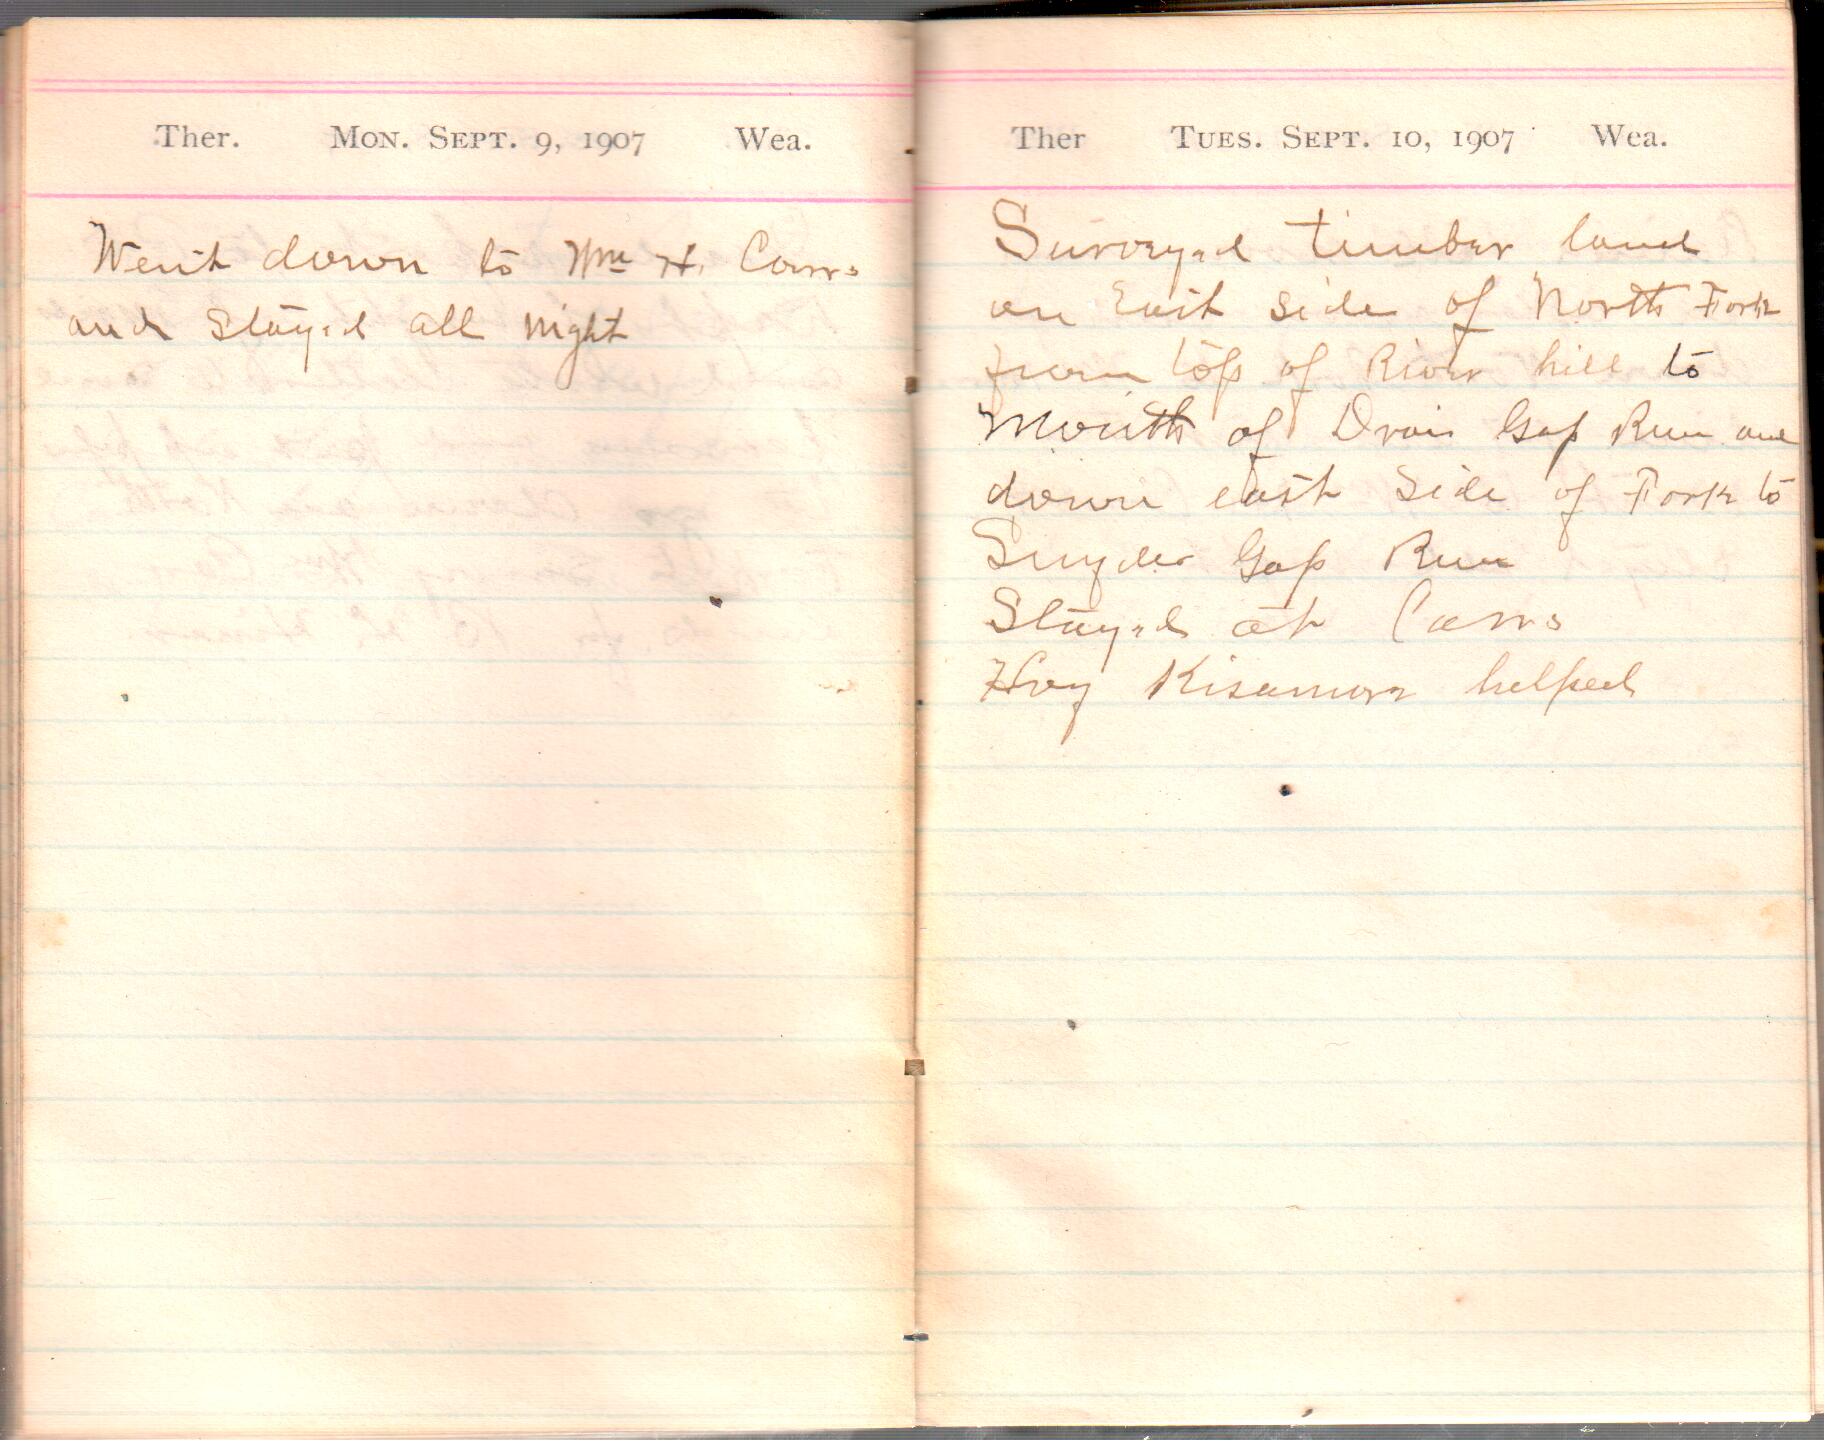 Ther. MON. SEPT. 9, 1907 Wea.
Went down to Wm H. Carrs
and Stayed all night
Ther TUES. SEPT. 10, 1907 Wea.
Surveyed timber land
on East side of North Fork
from top of River hill to
Mouth of Gap Run and
down east Side of Fork to
Snyder Gap Run
Stayed at Carrs
Hoy Kisamore helped